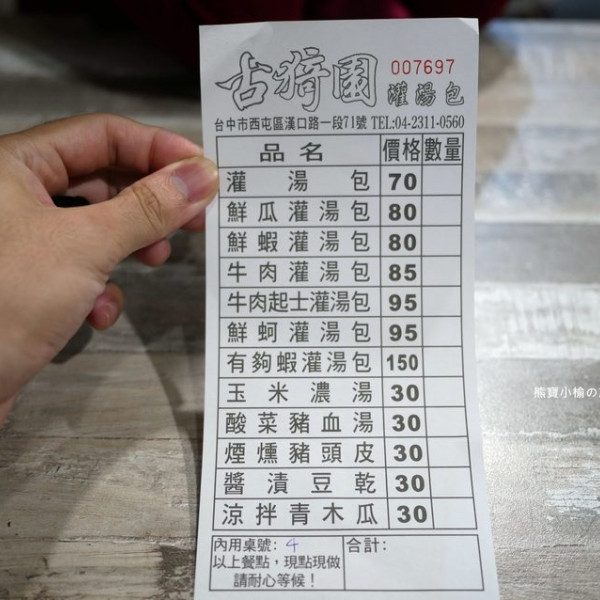 古猗園 007697
灌湯包
台中市西屯區漢口路一段71號 TEL:04-2311-0560
品名 價格 數量
灌湯包 70
鮮瓜灌湯包 80
鮮蝦灌湯包 80
牛肉灌湯包 85
牛肉起士灌湯包 95
鮮蚵灌湯包 95
有夠蝦灌湯包 150
玉米濃湯 30
酸菜豬血湯 30
煙燻豬頭皮 30
醬漬豆乾 30
涼拌青木瓜 30
內用桌號: 4 合計:
以上餐點,現點現做
請耐心等候!
熊寶小榆の